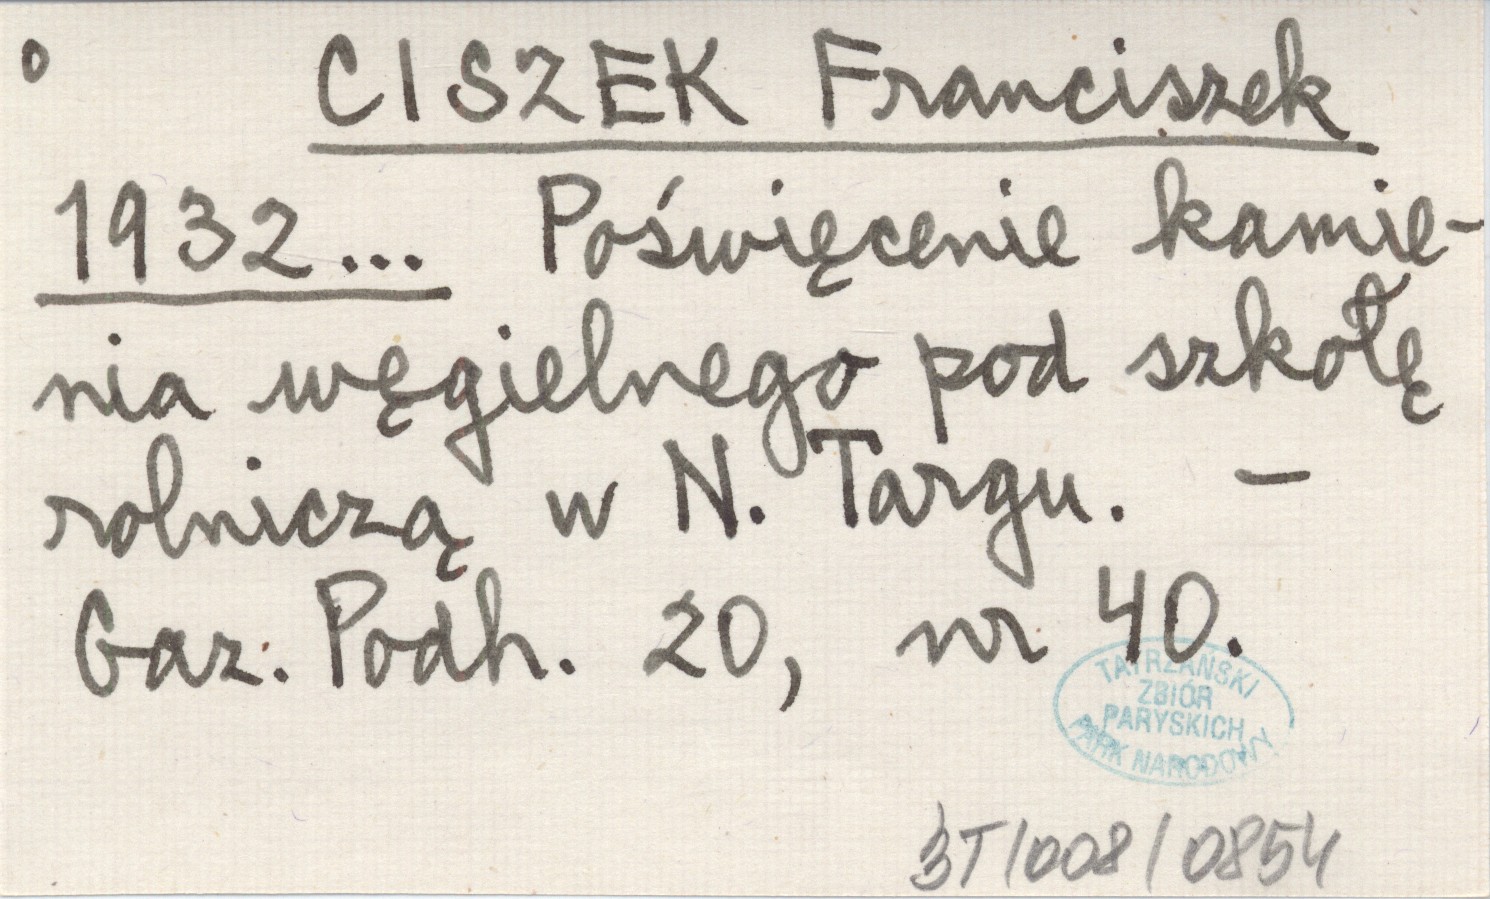 o CISZEK Franciszek
1932... Poświęcenie kamie-
nia węgielnego pod szkołę
rolniczą w N. Targu. –
Gaz. Podh. 20, nr 40.
TATRZAŃSKI
ZBIÓR
PARYSKICH
PARK NARODOWY
3T/008/0854